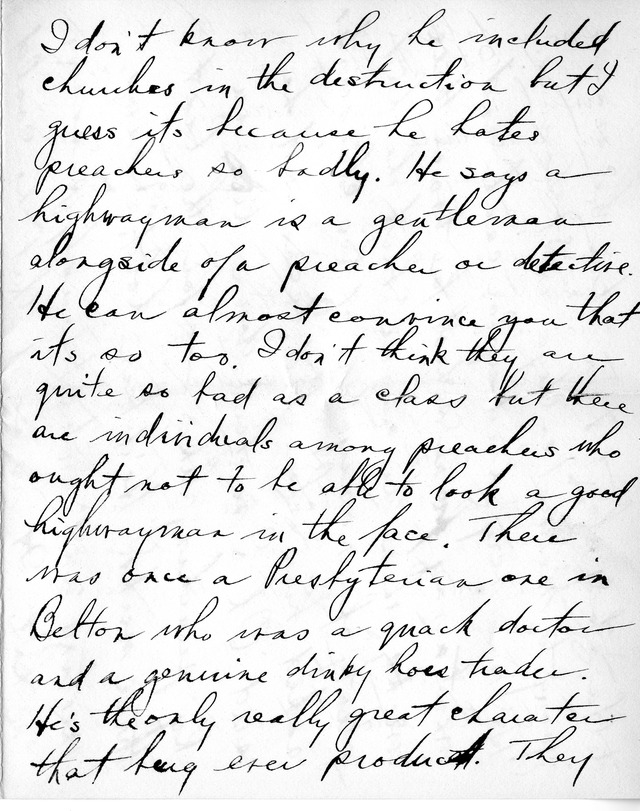 I don't know why he included
churches in the destruction but I
guess its because he hates
preachers so badly. He says a
highwayman is a gentleman
alongside of a preacher or detective.
He can almost convince you that
its so too. I don't think they are
quite so bad as a class but there
are individuals among preachers who
ought not to be able to look a good
highwayman in the face. There
was once a Presbyterian one in
Belton who was a quack doctor
and a genuine dinky hoss trader.
He's the only really great charater
that burg ever produced. They